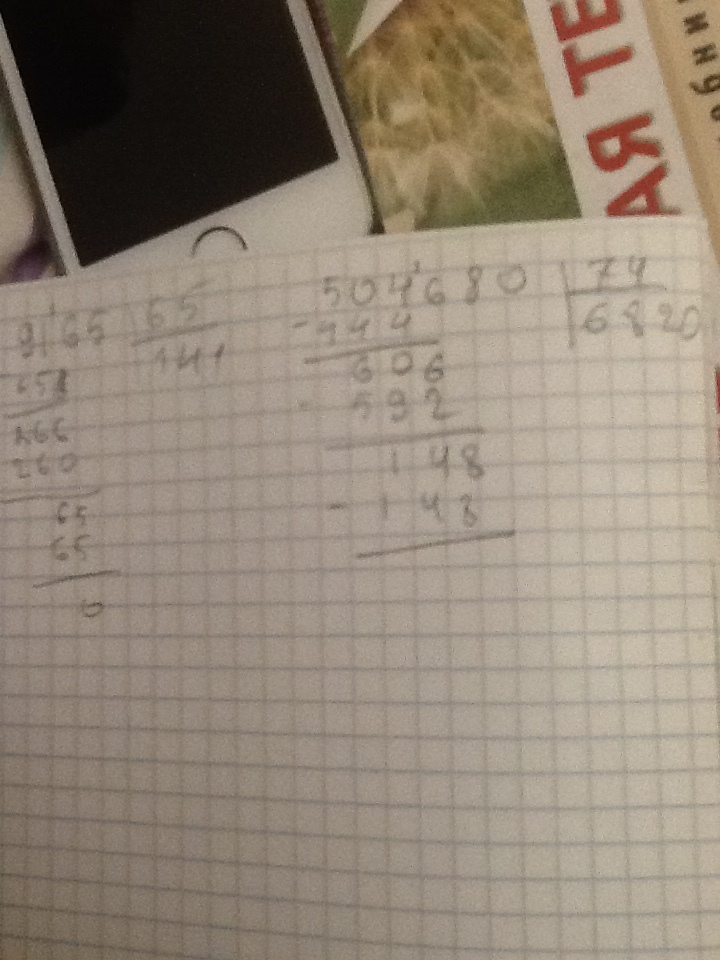 АЯ ТЕ
9165 65
141
65
266
260
65
65
0
504680 74
- 444 6820
606
- 592
148
- 148